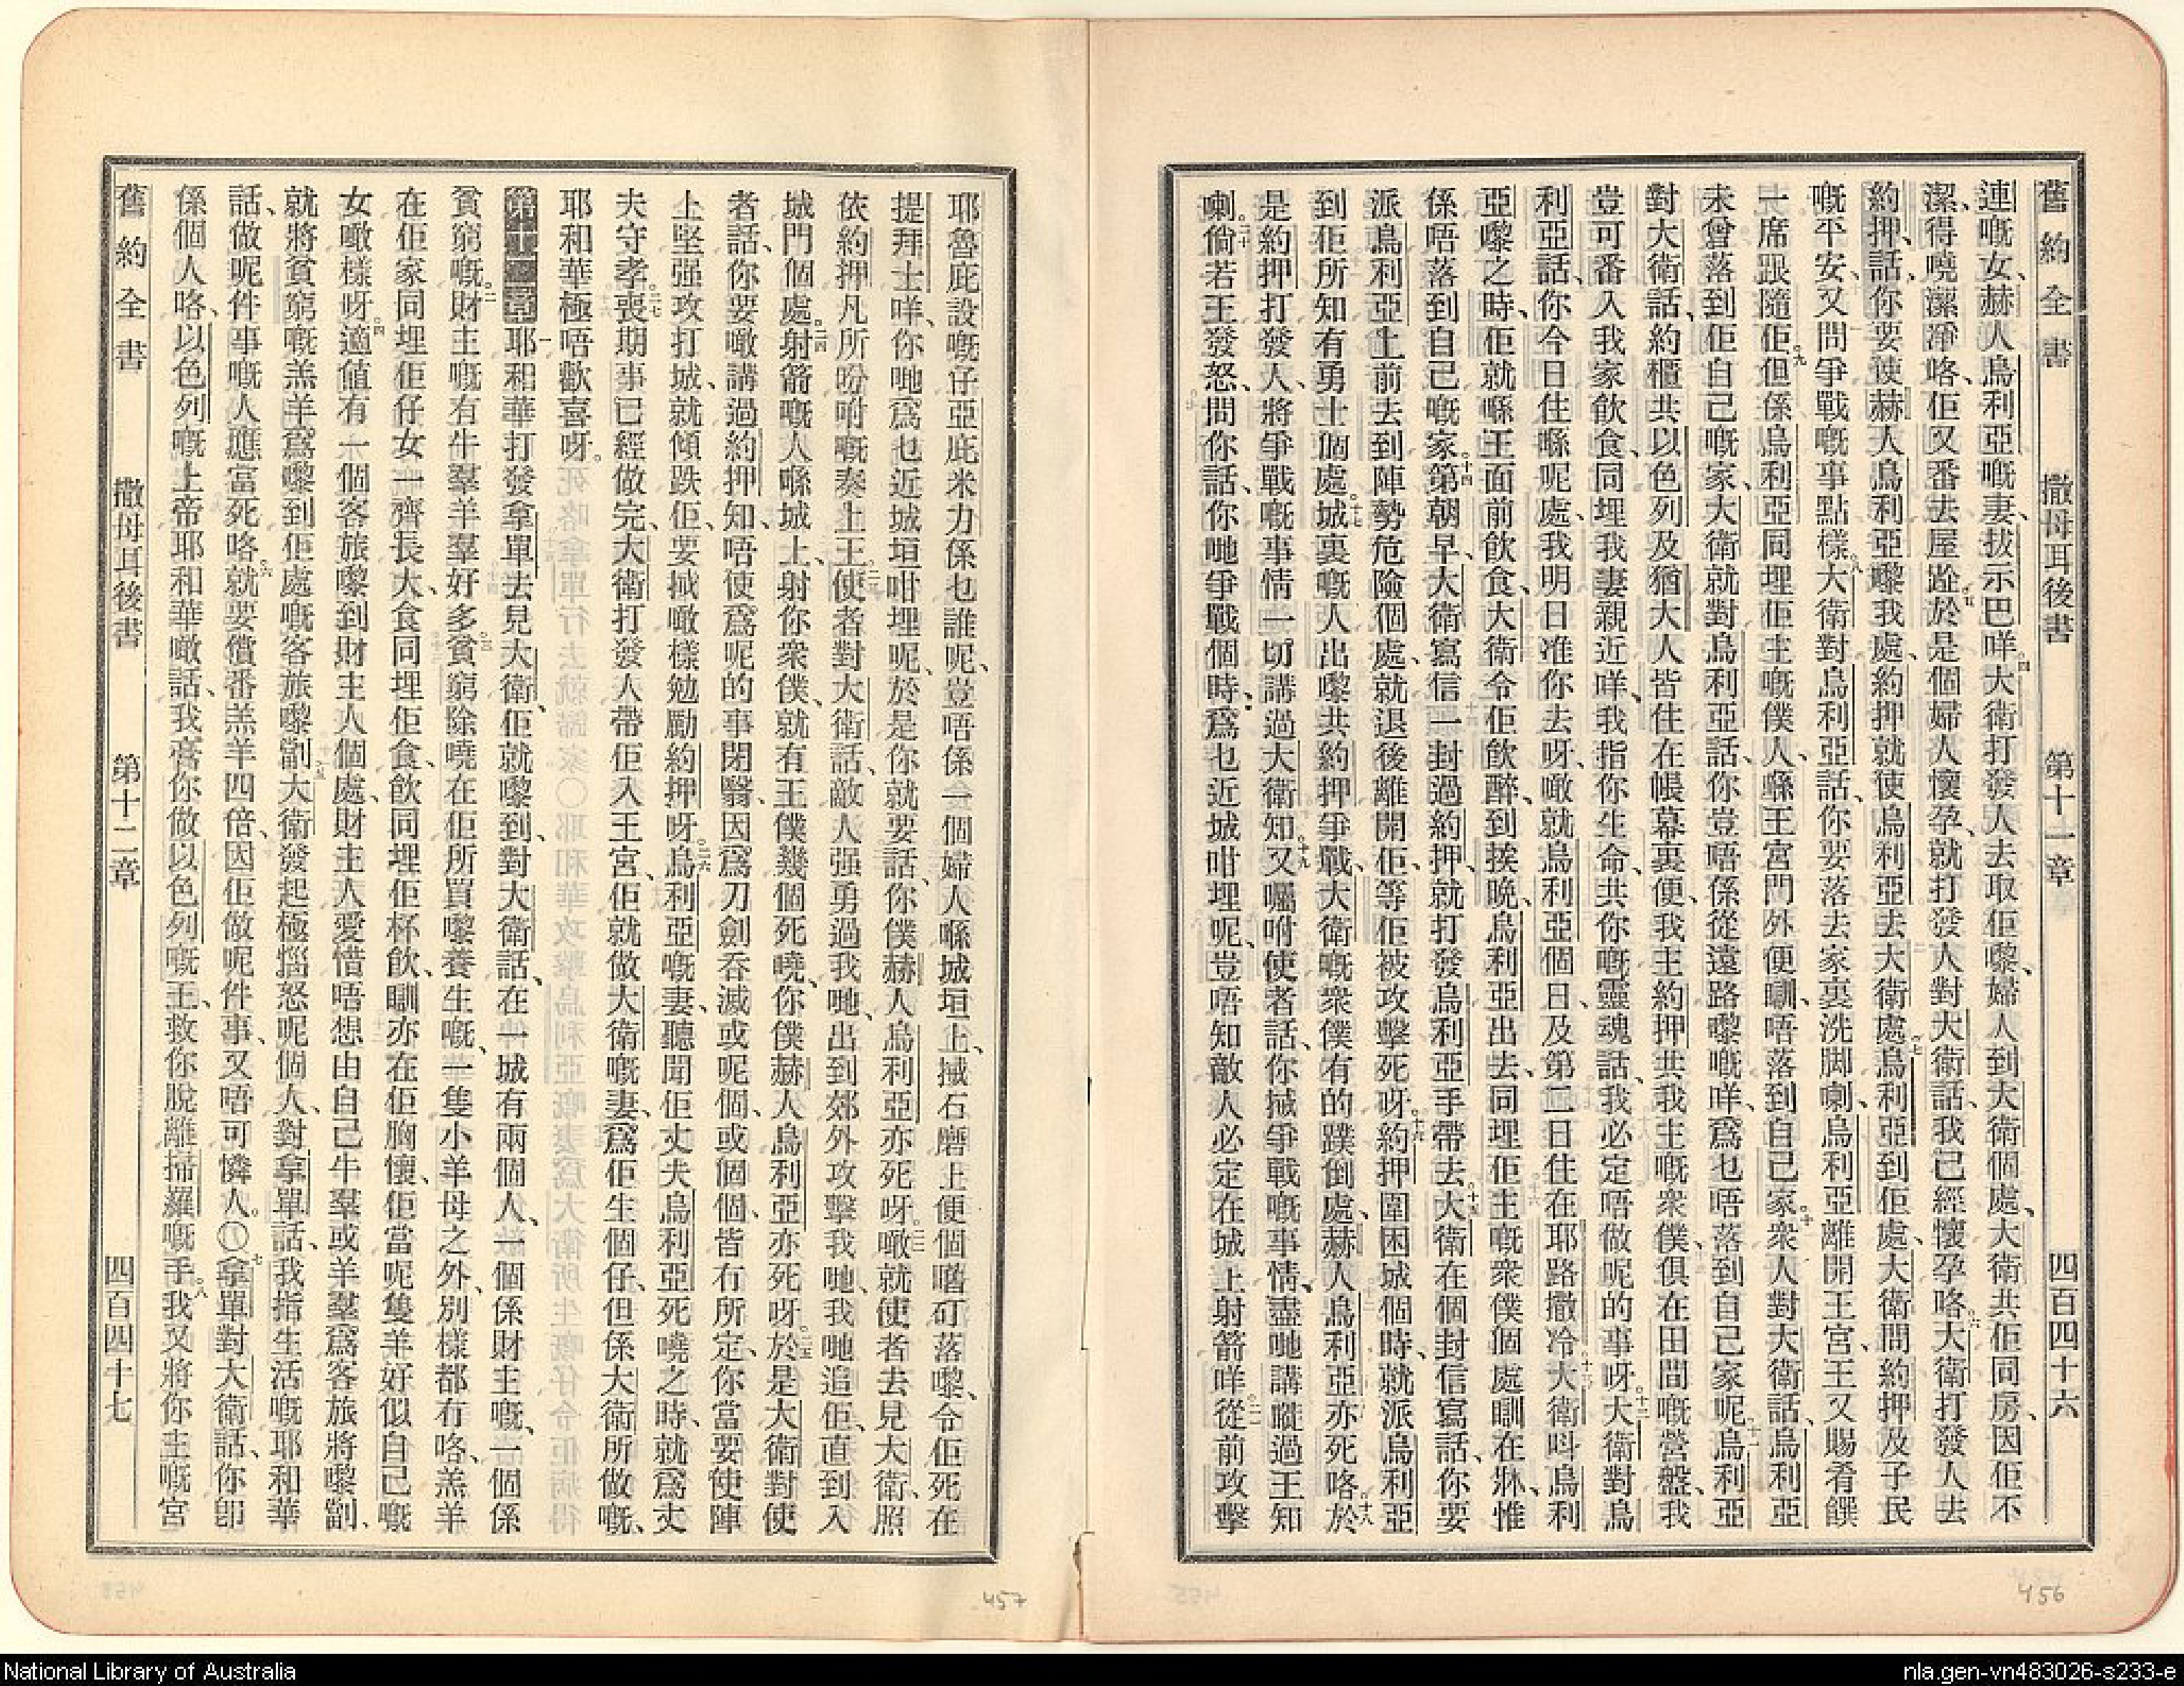 舊約全書 撒母耳後書 第十一章 四百四十六
連嘅女、赫人烏利亞嘅妻、拔示巴咩。四大衛打發人去取佢嚟、婦人到大衛個處、大衛共佢同房、因佢不
潔、得曉潔淨咯、佢又番去屋跧。五於是個婦人懷孕、就打發人對大衛話、我已經懷孕咯。六大衛打發人去
約押、話、你要使赫人烏利亞嚟我處、約押就使烏利亞去大衛處。七烏利亞到佢處、大衛問約押及子民
嘅平安、又問爭戰嘅事點樣。八大衛對烏利亞話、你要落去家裏洗脚喇、烏利亞離開王宮、王又賜肴饌
一席跟隨佢。九但係烏利亞同埋佢主嘅僕人、喺王宮門外便瞓、唔落到自己家。十衆人對大衛話、烏利亞
未曾落到佢自己嘅家、大衛就對烏利亞話、你豈唔係從遠路嚟嘅咩、爲乜唔落到自己家呢。十一烏利亞
對大衛話、約櫃共以色列及猶大人皆住在帳幕裏便、我主約押共我主嘅衆僕、俱在田間嘅營盤、我
豈可番入我家飲食、同埋我妻親近咩、我指你生命、共你嘅靈魂話、我必定唔做呢的事呀。十二大衛對烏
利亞話、你今日住喺呢處、我明日准你去呀、噉就烏利亞個日、及第二日住在耶路撒冷。十三大衛呌烏利
亞嚟之時、佢就喺王面前飲食、大衛令佢飲醉、到挨晚、烏利亞出去同埋佢主嘅衆僕個處瞓在牀、惟
係唔落到自己嘅家。十四第朝早、大衛寫信一封過約押、就打發烏利亞手帶去。十五大衛在個封信寫話、你要
派烏利亞上前去到陣勢危險個處、就退後離開佢、等佢被攻擊死呀。十六約押圍困城個時、就派烏利亞
到佢所知有勇士個處。十七城裏嘅人出嚟共約押爭戰、大衛嘅衆僕有的蹼倒處、赫人烏利亞亦死咯。十八於
是約押打發人、將爭戰嘅事情一切講過大衛知。十九又囑咐使者話、你搣爭戰嘅事情、盡哋講嚨過王知
喇。二十倘若王發怒、問你話、你哋爭戰個時、爲乜近城咁埋呢、豈唔知敵人必定在城上射箭咩。二一從前攻擊
耶魯庇設嘅仔亞庇米力係乜誰呢、豈唔係一個婦人喺城垣上、搣石磨上便個嚿矴落嚟、令佢死在
提拜士咩、你哋爲乜近城垣咁埋呢、於是你就要話、你僕赫人烏利亞亦死呀。二二噉就使者去見大衛、照
依約押凡所吩咐嘅奏上王。二三使者對大衛話、敵人强勇過我哋、出到郊外攻擊我哋、我哋追佢、直到入
城門個處。二四射箭嘅人喺城上、射你衆僕、就有王僕幾個死曉、你僕赫人烏利亞亦死呀。二五於是大衛對使
者話、你要噉講過約押知、唔使爲呢的事閉翳、因爲刀劍吞滅或呢個、或個個、皆冇所定、你當要使陣
上堅强攻打城、就傾跌佢、要搣噉樣勉勵約押呀。二六烏利亞嘅妻、聽聞佢丈夫烏利亞死曉之時、就爲丈
夫守孝。二七喪期事已經做完、大衛打發人帶佢入王宮、佢就做大衛嘅妻、爲佢生個仔、但係大衛所做嘅、
耶和華極唔歡喜呀。
第十二章 一耶和華打發拿單去見大衛、佢就嚟到、對大衛話、在一城有兩個人、一個係財主嘅、一個係
貧窮嘅。二財主嘅有牛羣羊羣好多。三貧窮除曉在佢所買嚟養生嘅、一隻小羊母之外、別樣都冇咯、羔羊
在佢家同埋佢仔女一齊長大、食同埋佢食、飲同埋佢杯飲、瞓亦在佢胸懷、佢當呢隻羊好似自己嘅
女噉樣呀。四適値有一個客旅嚟到財主人個處、財主人愛惜唔想由自己牛羣或羊羣、爲客旅將嚟劏、
就將貧窮嘅羔羊、爲嚟到佢處嘅客旅嚟劏。五大衛發起極惱怒呢個人、對拿單話、我指生活嘅耶和華
話、做呢件事嘅人應當死咯。六就要償番羔羊四倍、因佢做呢件事、又唔可憐人。〇七拿單對大衛話、你卽
係個人咯、以色列嘅上帝耶和華噉話、我膏你做以色列嘅王、救你脫離掃羅嘅手。八我又將你主嘅宮
舊約全書 撒母耳後書 第十二章 四百四十七
456
457
National Library of Australia
nla.gen-vn483026-s233-e